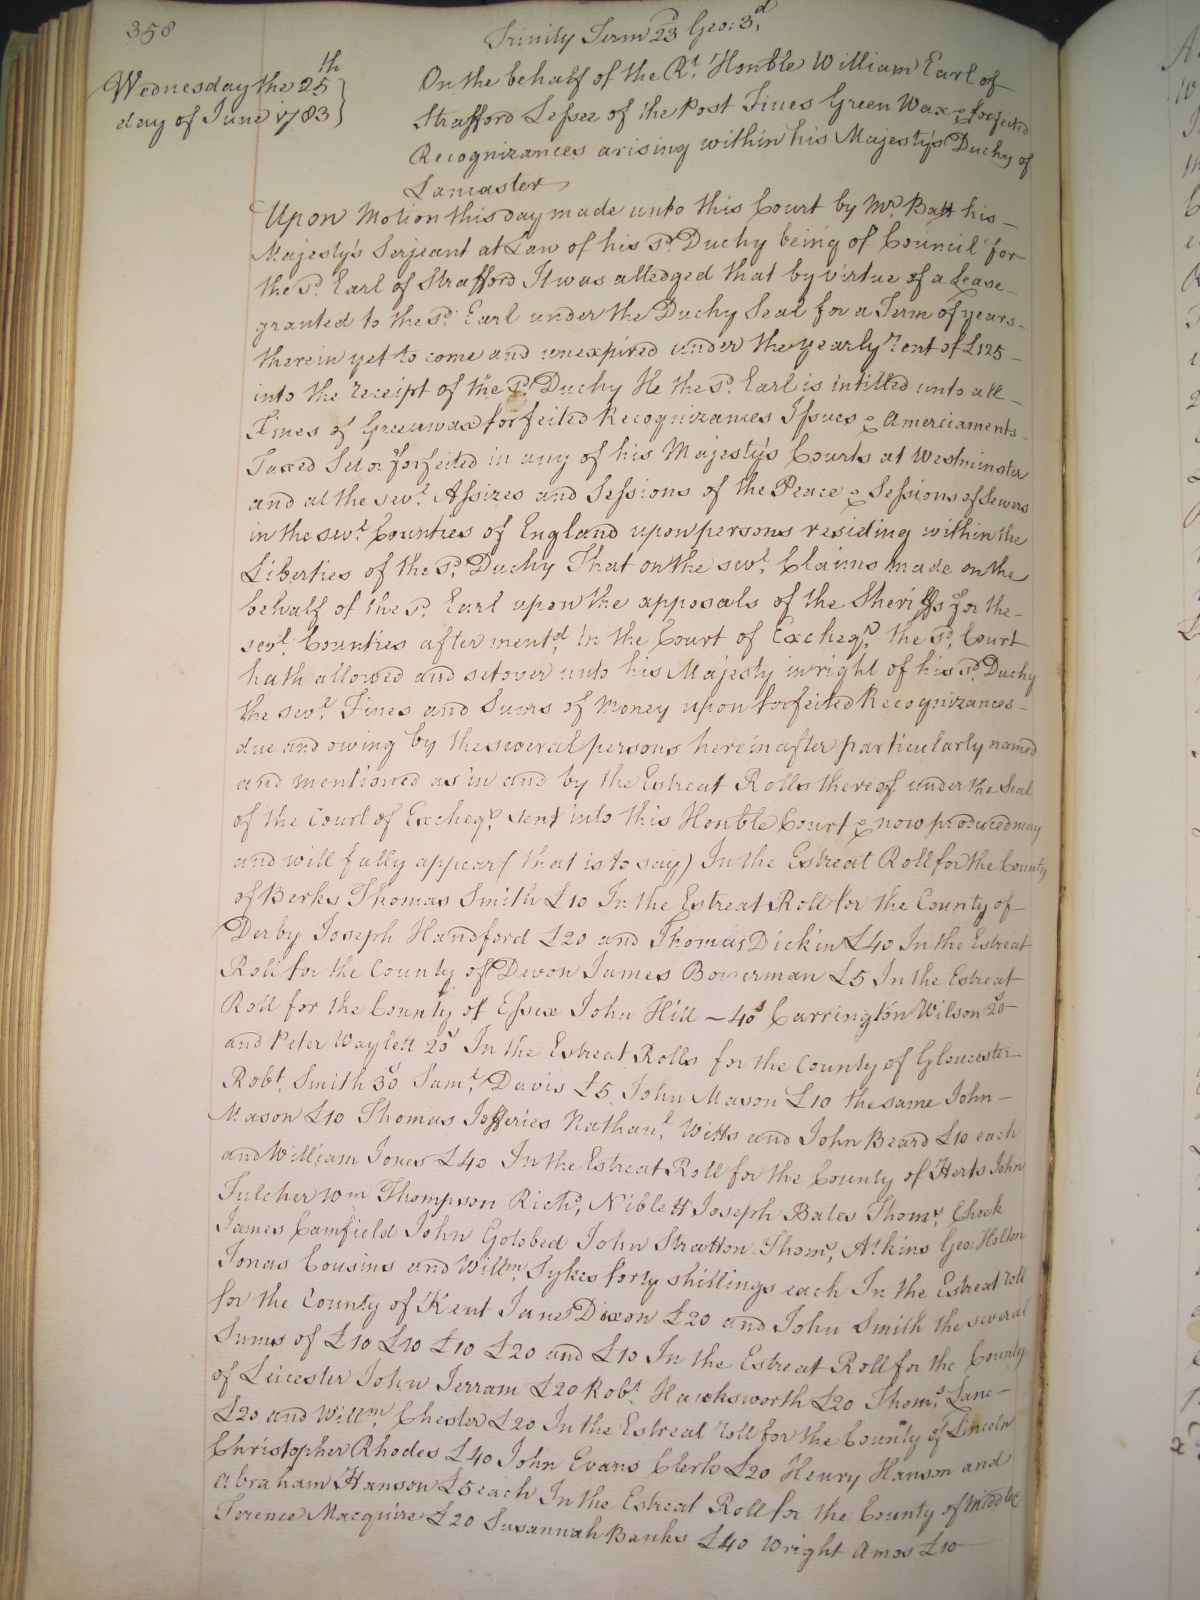 358
Trinity Term 23.d Geo: 3.d
Wednesday the 25th
day of June 1783
On the behalf of the Rt. Honble William Earl of
Strafford Lessee of the Post Fines Green Wax & forfeited
Recognizances arising within his Majesty's Duchy of
Lancaster
Upon Motion this day made unto this Court by Mr. Batt his
Majesty's Serjeant at Law of his sd. Duchy being of Council for
the sd. Earl of Strafford It was alledged that by virtue of a Lease
granted to the sd. Earl under the Duchy Seal for a Term of years
therein yet to come and unexpired under the yearly rent of £125
into the receipt of the sd. Duchy He the sd. Earl is intitled unto all
Fines of Greenwax forfeited Recognizances Issues & Amerciaments
Taxed Set or forfeited in any of his Majesty's Courts at Westminster
and at the sevl. Assizes and Sessions of the Peace & Sessions of Sewers
in the sevl. Counties of England upon persons residing within the
Liberties of the sd. Duchy That on the sevl. Claims made on the
behalf of the sd. Earl upon the apposals of the Sheriffs for the
sevl. Counties after mentd. in the Court of Excheqr. the sd. Court
hath allowed and setover unto his Majesty in right of his sd. Duchy
the sevl. Fines and Sums of Money upon forfeited Recognizances
due and owing by the several persons herein after particularly named
and mentioned as in and by the Estreat Rolls thereof under the Seal
of the Court of Excheqr. sent into this Honble Court & now produced may
and will fully appear (that is to say) In the Estreat Roll for the County
of Berks Thomas Smith £10 In the Estreat Roll for the County of
Derby Joseph Handford £20 and Thomas Dickin £40 In the Estreat
Roll for the County of Devon James Bowerman £5 In the Estreat
Roll for the County of Essex John Hill 40s Carrington Wilson 20s
and Peter Waylett 20s In the Estreat Rolls for the County of Gloucester
Robt. Smith 30s Saml. Davis £5 John Mason £10 the same John
Mason £10 Thomas Jefferies Nathanl. Witts and John Beard £10 each
and William Jones £40 In the Estreat Roll for the County of Herts John
Fulcher Wm Thompson Richd. Niblett Joseph Bates Thoms. Cheek
James Camfield John Golsbed John Stratton Thoms. Atkins Geo: Holton
Jonas Cousins and Willm. Sykes forty shillings each In the Estreat roll
for the County of Kent Jane Dixon £20 and John Smith the several
Sums of £10 £10 £10 £20 and £10 In the Estreat Roll for the County
of Leicester John Jerram £20 Robt. Hawksworth £20 Thoms. Lane
£20 and Willm. Chester £20 In the Estreat roll for the County of Lincoln
Christopher Rhodes £40 John Evans Clerk £20 Henry Hanson and
Abraham Hanson £5 each In the Estreat Roll for the County of Middx
Terence Macquire £20 Susannah Banks £40 Wright Amos £10